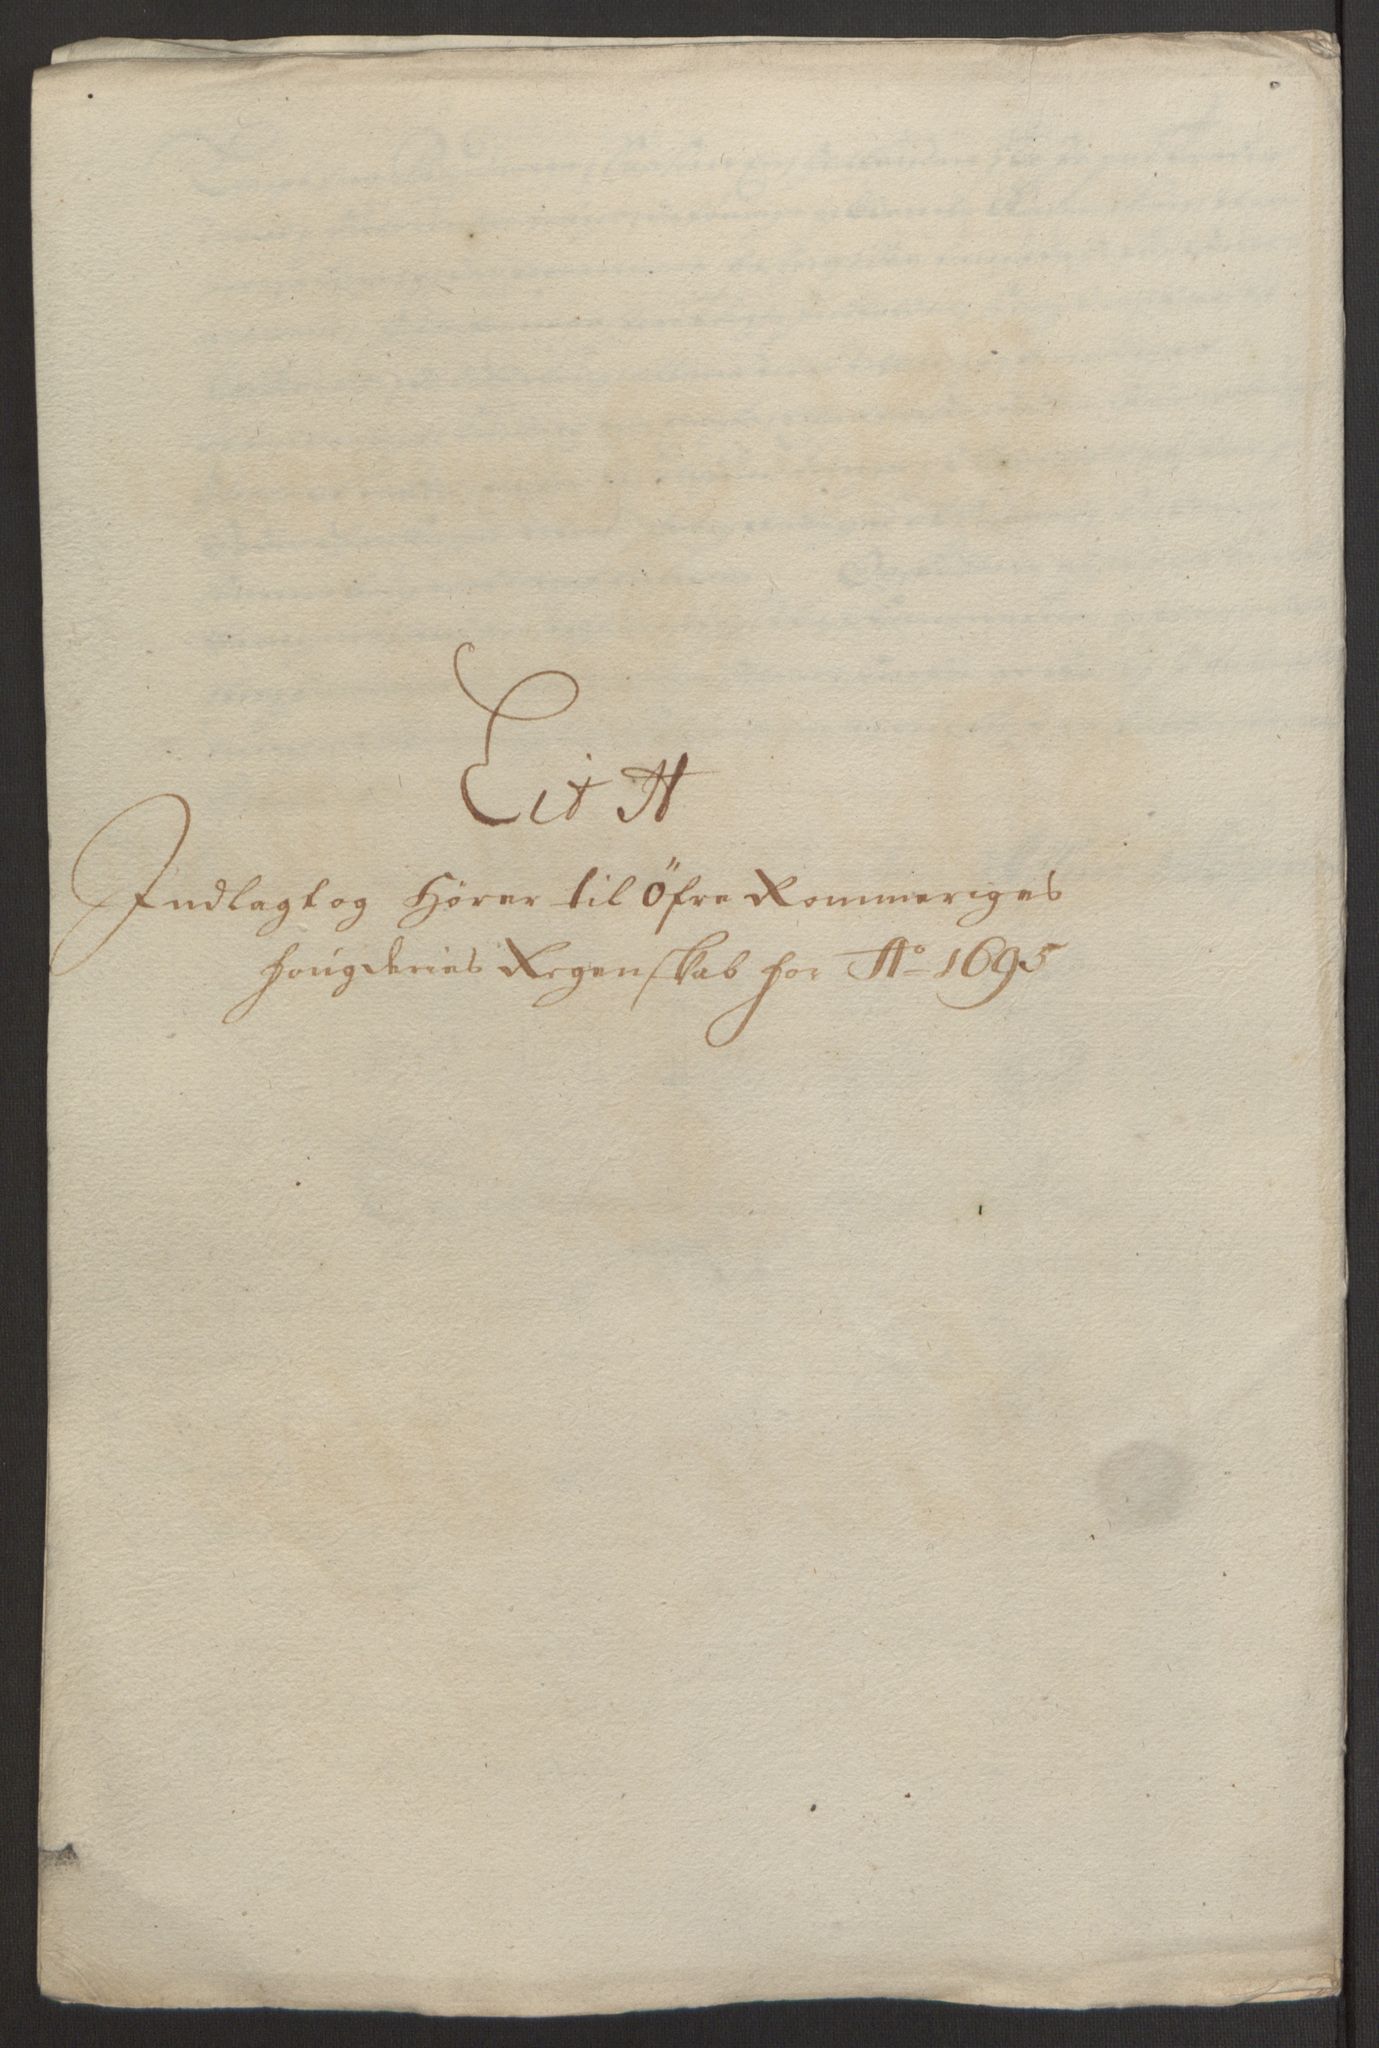 Lit A
Indlagt og Hører til Öfre Rommeriges
fougderies Regenskab for Ao 1695